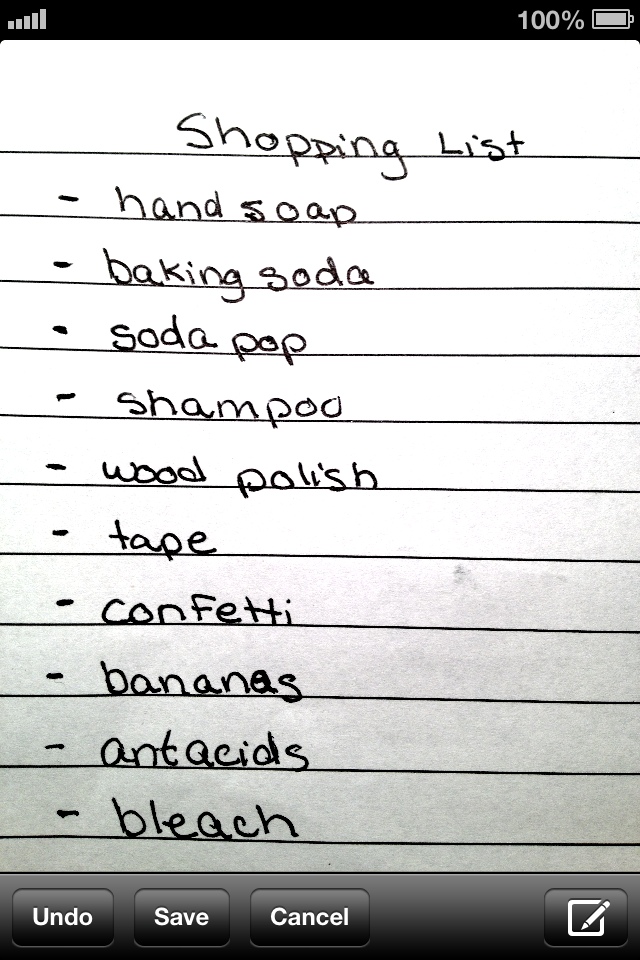 100%
Shopping List
- hand soap
- baking soda
- soda pop
- shampoo
- wood polish
- tape
- confetti
- bananas
- antacids
- bleach
Undo Save Cancel